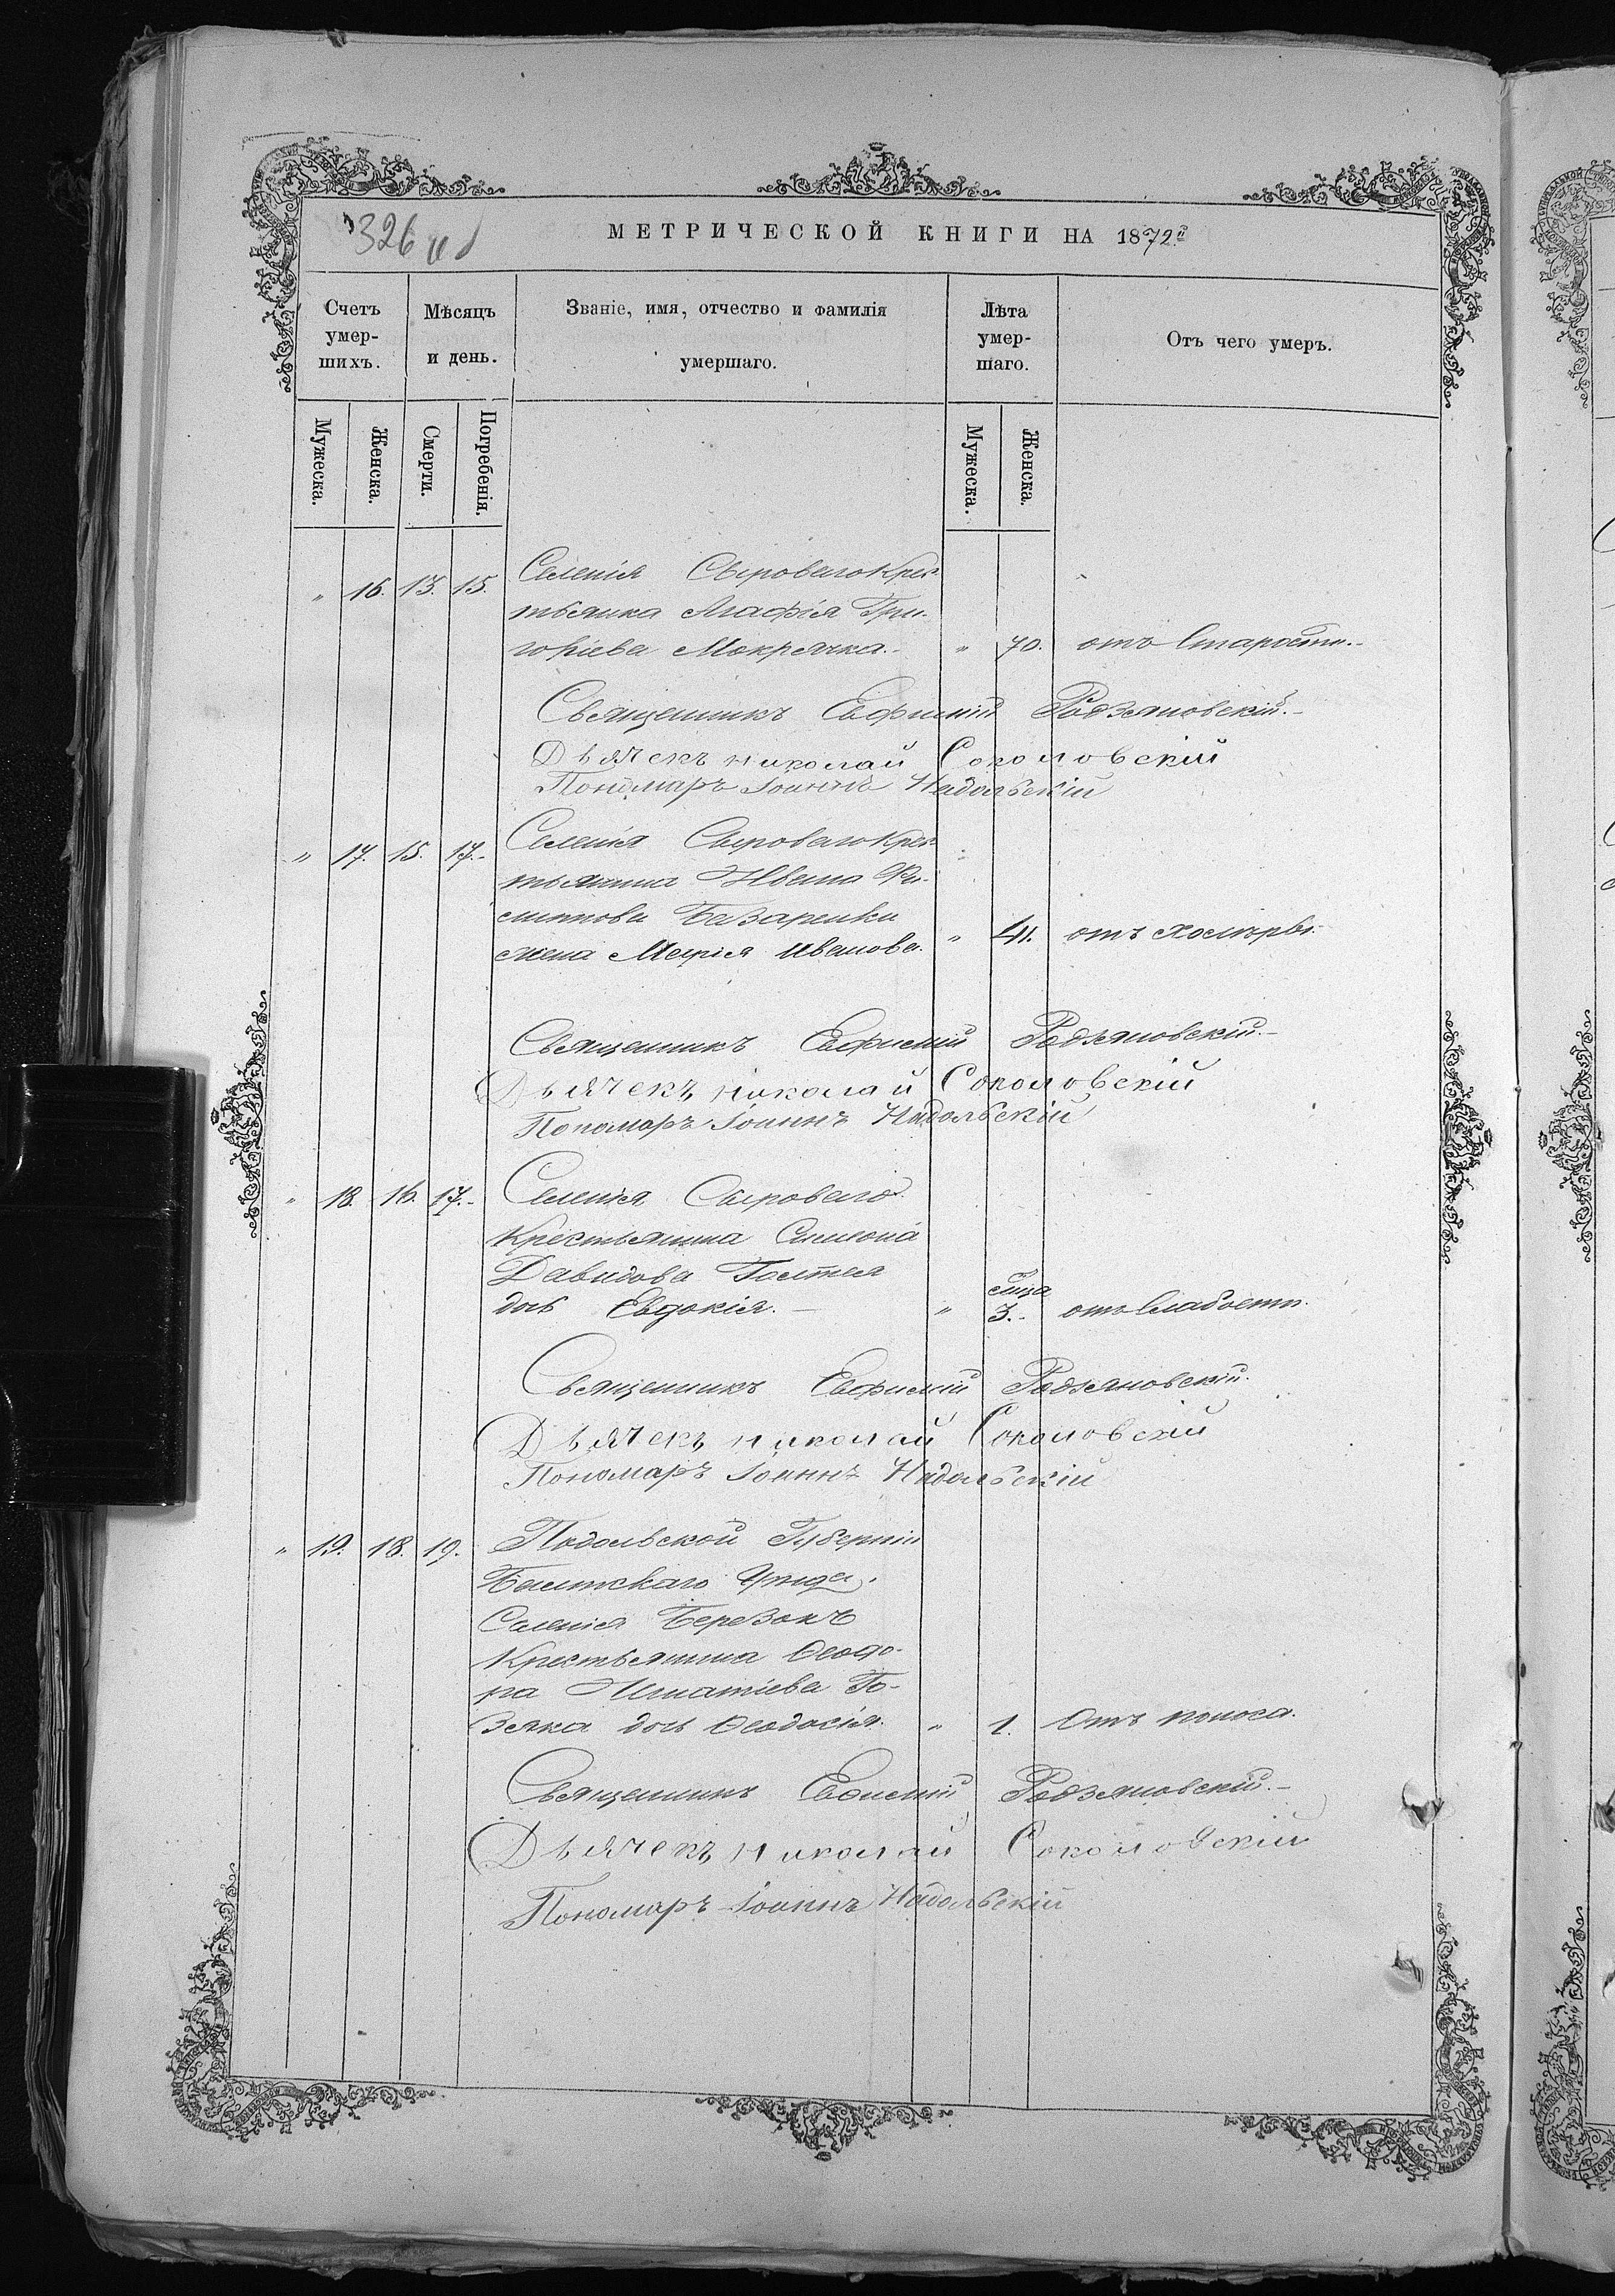 326
МЕТРИЧЕСКОЙ КНИГИ НА 1872й
Счетъ умер- шихъ.
Мѣсяцъ и день.
Званіе, имя, отчество и фамилія умершаго.
Лѣта умер- шаго.
Отъ чего умеръ.
Мужеска. Женска. Смерти. Погребенія. Мужеска. Женска.
Селенія Сыроваго Крес
„ 16. 13. 15. тьянка Агафія Гри-
горіева Мокрячка. „ 70. отъ Старости.
Священникъ Евфимій Родзяновскій.
Дьячекъ Николай Соколовскій
Пономарь Іоаннъ Надольскій
„ 17. 15. 17. Селенія Сыроваго Крес
тьянина Ивана Фи-
липпова Базаренки
жена Марія Иванова. „ 41. отъ холеры.
Священникъ Евфимій Родзяновскій.
Дьячекъ Николай Соколовскій
Пономарь Іоаннъ Надольскій
„ 18. 16. 17. Селенія Сыроваго
Крестьянина Симіона
Давидова
дочь Евдокія. „ 3. отъ слабости.
Священникъ Евфимій Родзяновскій.
Дьячекъ Николай Соколовскій
Пономарь Іоаннъ Надольскій
„ 19. 18. 19. Подольской Губерніи
Балтскаго Уѣзда,
Селенія Березокъ
Крестьянина Ѳеодо-
ра Игнатіева Го-
зяка дочь Ѳеодосія. „ 1. Отъ поноса.
Священникъ Евфимій Родзяновскій.
Дьячекъ Николай Соколовскій
Пономарь Іоаннъ Надольскій